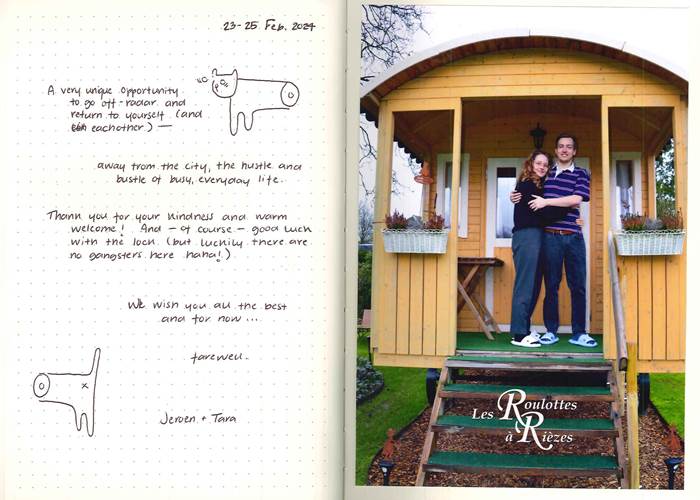 23-25 Feb. 2024
A very unique opportunity
to go off-radar and
return to yourself (and
eachother) —
away from the city, the hustle and
bustle of busy, everyday life.
Thank you for your kindness and warm
welcome! And - of course - good luck
with the lock (but luckily there are
no gangsters here haha!)
We wish you all the best
and for now ...
farewell.
Jeroen + Tara
Les Roulottes
à Rièzes